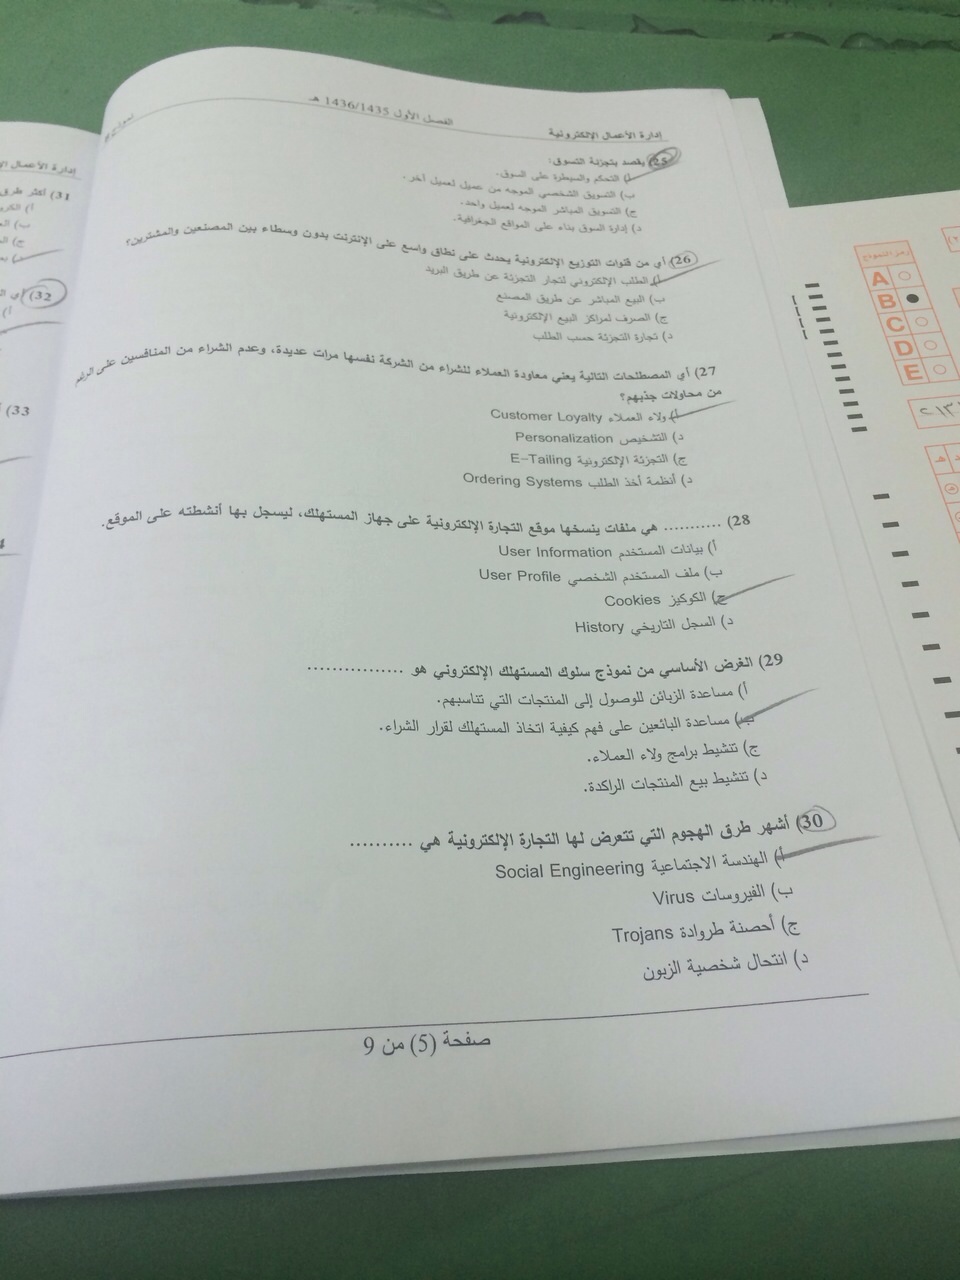 إدارة الأعمال الإلكترونية
الفصل الأول 1436/1435 هـ
25) يقصد بتجزئة التسوق:
أ) التحكم والسيطرة على السوق.
ب) التسويق الشخصي الموجه من عميل لعميل آخر.
ج) التسويق المباشر الموجه لعميل واحد.
د) إدارة السوق بناء على المواقع الجغرافية.
26) أي من قنوات التوزيع الإلكترونية يحدث على نطاق واسع على الإنترنت بدون وسطاء بين المصنعين والمشترين؟
أ) الطلب الإلكتروني لتجار التجزئة عن طريق البريد
ب) البيع المباشر عن طريق المصنع
ج) الصرف لمراكز البيع الإلكترونية
د) تجارة التجزئة حسب الطلب
27) أي المصطلحات التالية يعني معاودة العملاء للشراء من الشركة نفسها مرات عديدة، وعدم الشراء من المنافسين على الرغم
من محاولات جذبهم؟
أ) ولاء العملاء Customer Loyalty
د) التشخيص Personalization
ج) التجزئة الإلكترونية E-Tailing
د) أنظمة أخذ الطلب Ordering Systems
28) ........... هي ملفات ينسخها موقع التجارة الإلكترونية على جهاز المستهلك، ليسجل بها أنشطته على الموقع.
أ) بيانات المستخدم User Information
ب) ملف المستخدم الشخصي User Profile
ج) الكوكيز Cookies
د) السجل التاريخي History
29) الغرض الأساسي من نموذج سلوك المستهلك الإلكتروني هو ................
أ) مساعدة الزبائن للوصول إلى المنتجات التي تناسبهم.
ب) مساعدة البائعين على فهم كيفية اتخاذ المستهلك لقرار الشراء.
ج) تنشيط برامج ولاء العملاء.
د) تنشيط بيع المنتجات الراكدة.
30) أشهر طرق الهجوم التي تتعرض لها التجارة الإلكترونية هي ..........
أ) الهندسة الاجتماعية Social Engineering
ب) الفيروسات Virus
ج) أحصنة طروادة Trojans
د) انتحال شخصية الزبون
صفحة (5) من 9
إدارة الأعمال
31) أكثر طرق
32) أي
33)
رمز النموذج
A
B
C
D
E